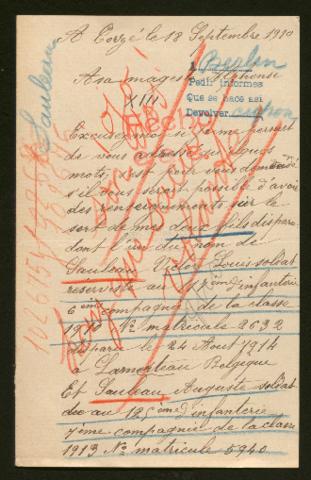 A Corzé le 18 Septembre 1910
A sa magesté Alphonse
XIII
Berlin
Pedir informes
Que se hace asi
Devolver
Sauleau
Excusez moi si je me permet
de vous adresser quelques
mots; c'est pour vous demandé
s'il vous serait possible d'avoir
des renseignements sur le
sort de mes deux fils disparu
dont l'un du nom de
Sauleau Victor Louis soldat
réserviste au ème d'infanterie
6ème compagnie de la classe
1910 No matricule 2632
disparu le 24 Août 1914
à Belgique
Et Sauleau Auguste soldat
au 125ème d'infanterie
7ème compagnie de la classe
1913 No matricule 5940